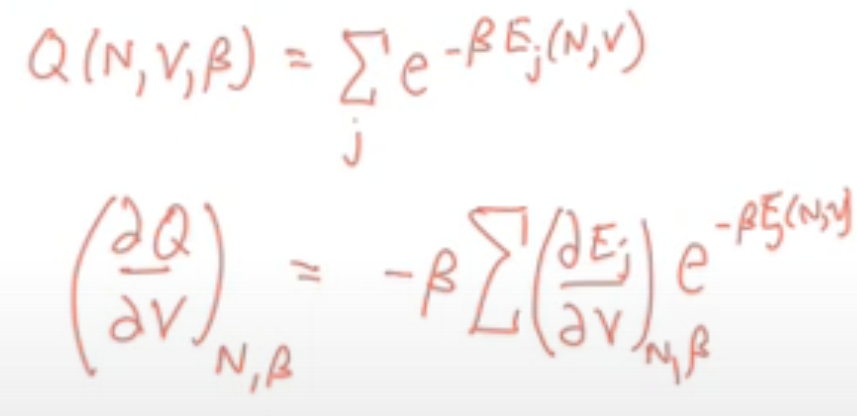 Q(N,V,β) = Σ_j e^{-βE_j(N,V)}
(∂Q/∂V)_{N,β} = -β Σ (∂E_j/∂V)_{N,β} e^{-βE_j(N,V)}